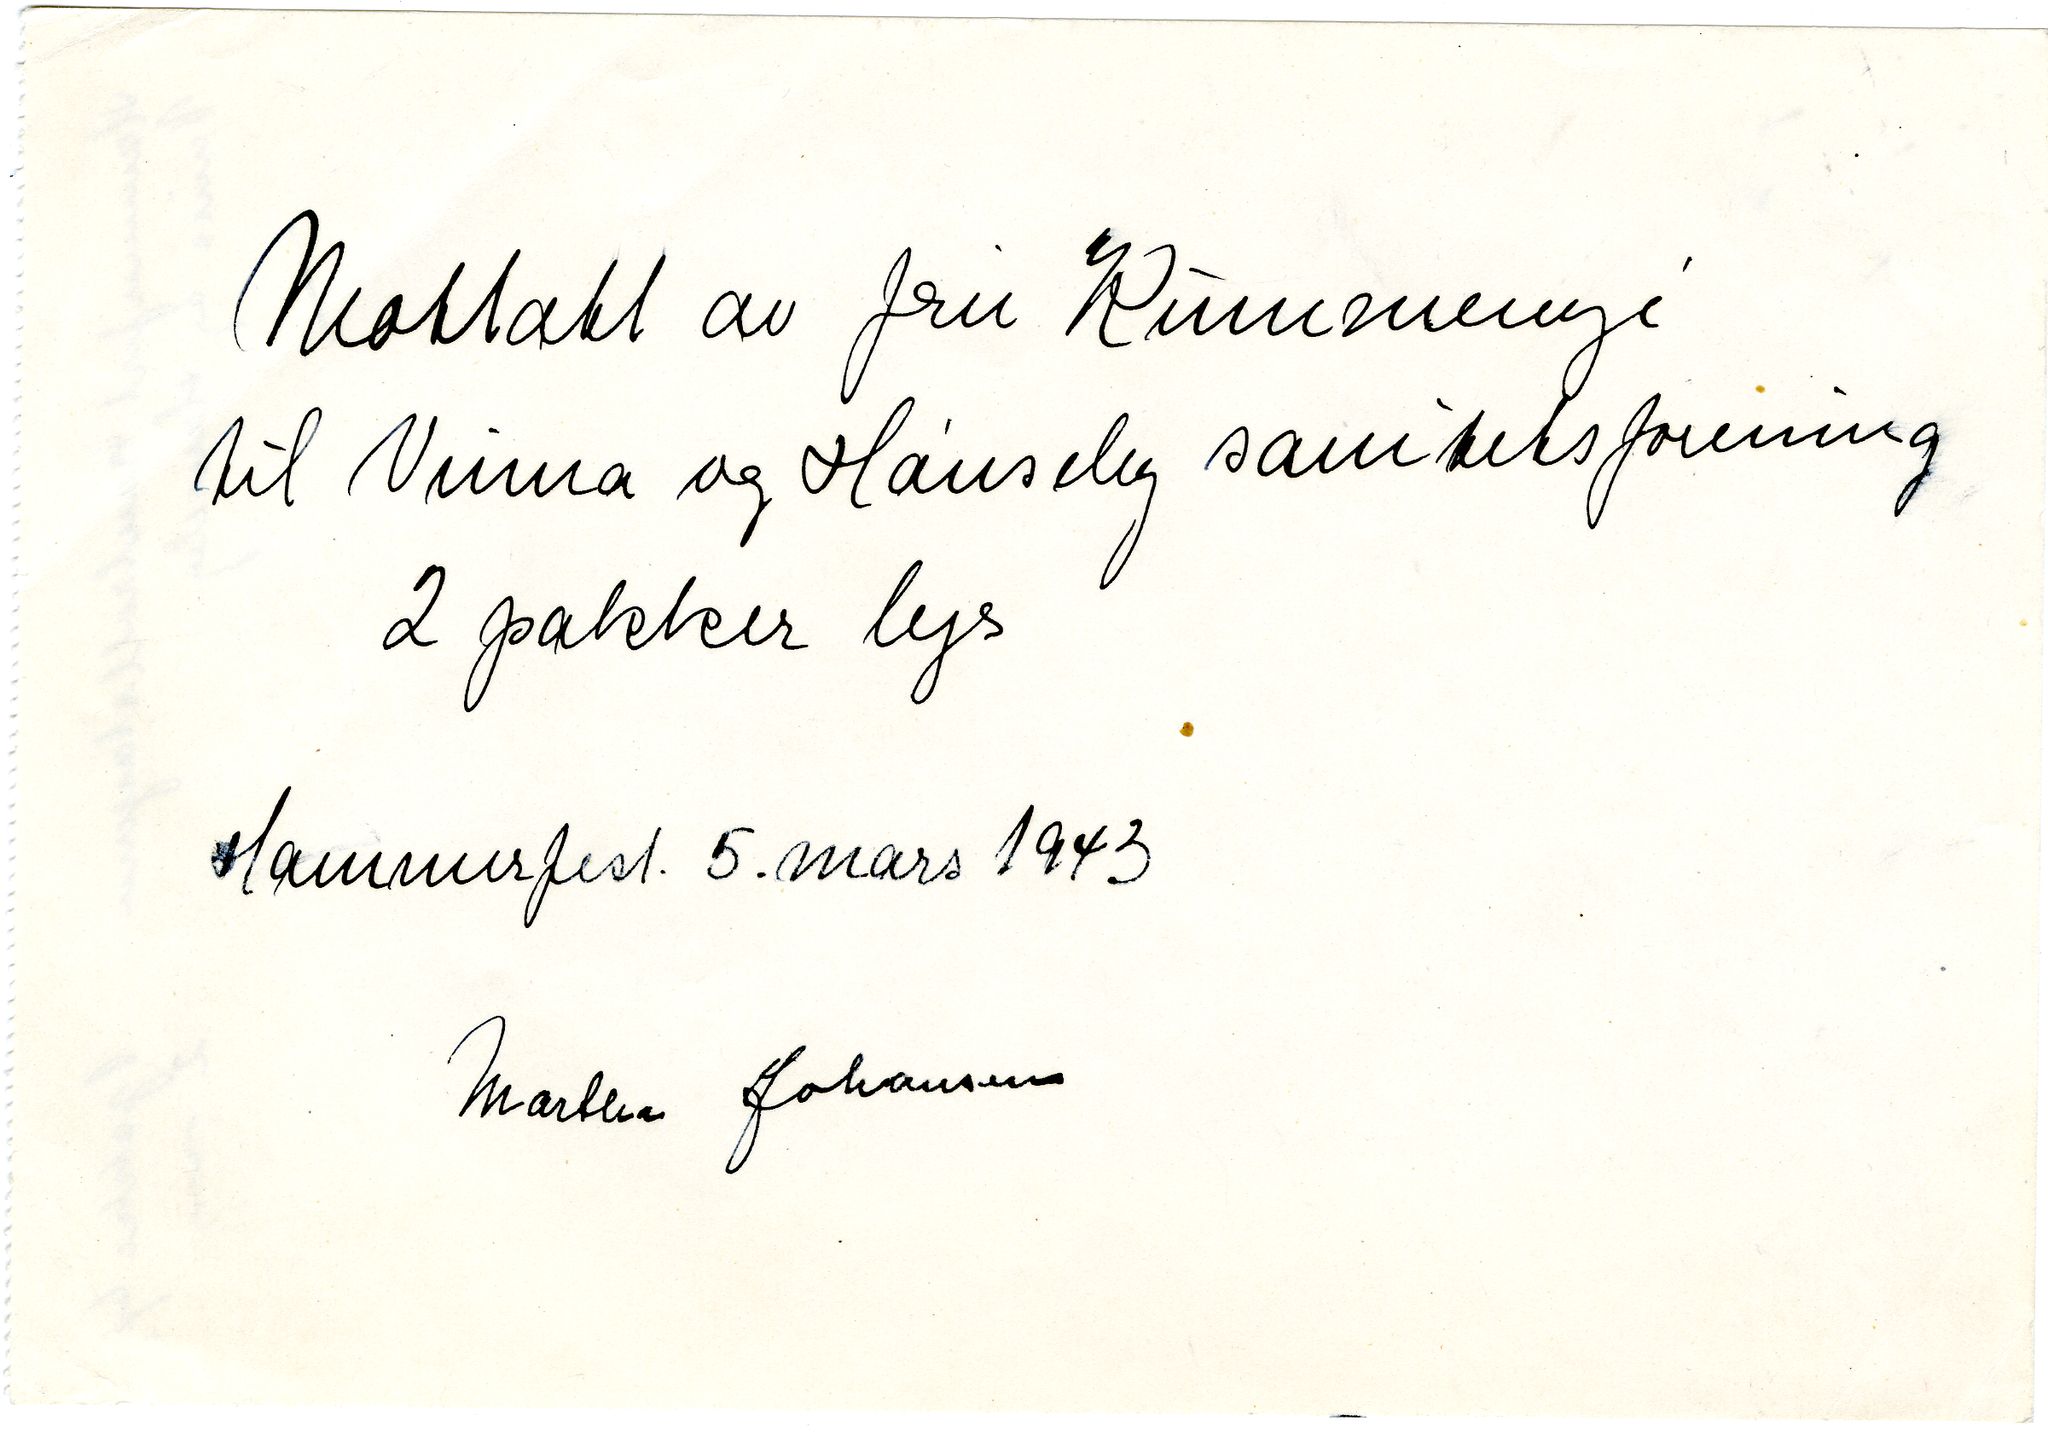 Mottatt av fru Kummenejé
til Vinna og Hånsdey sanitetsforening
2 pakker lys
Hammerfest. 5. mars 1943
Marthea Johansen